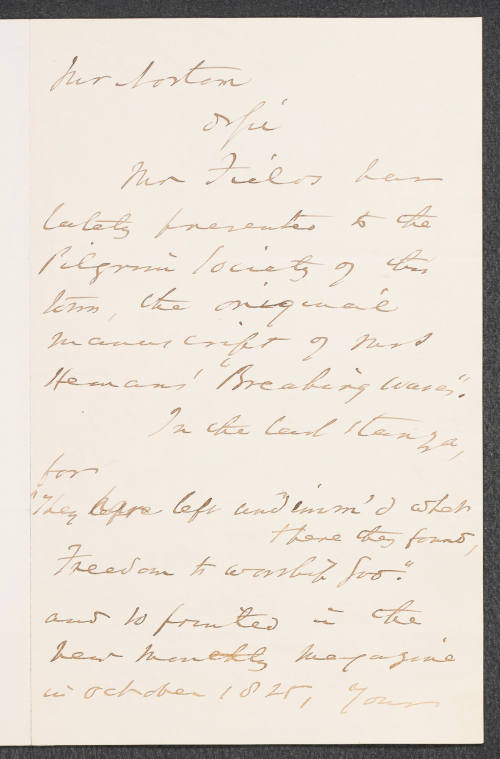 Mr Norton
Mr Fields has
lately presented to the
Pilgrim Society of this
town, the original
manuscript of Mrs
Hemans' "Breaking Waves".
In the last stanza,
for
"They have left undimm'd what
there they found,
Freedom to worship God."
and so printed in the
New Monthly Magazine
in October 1825, Your